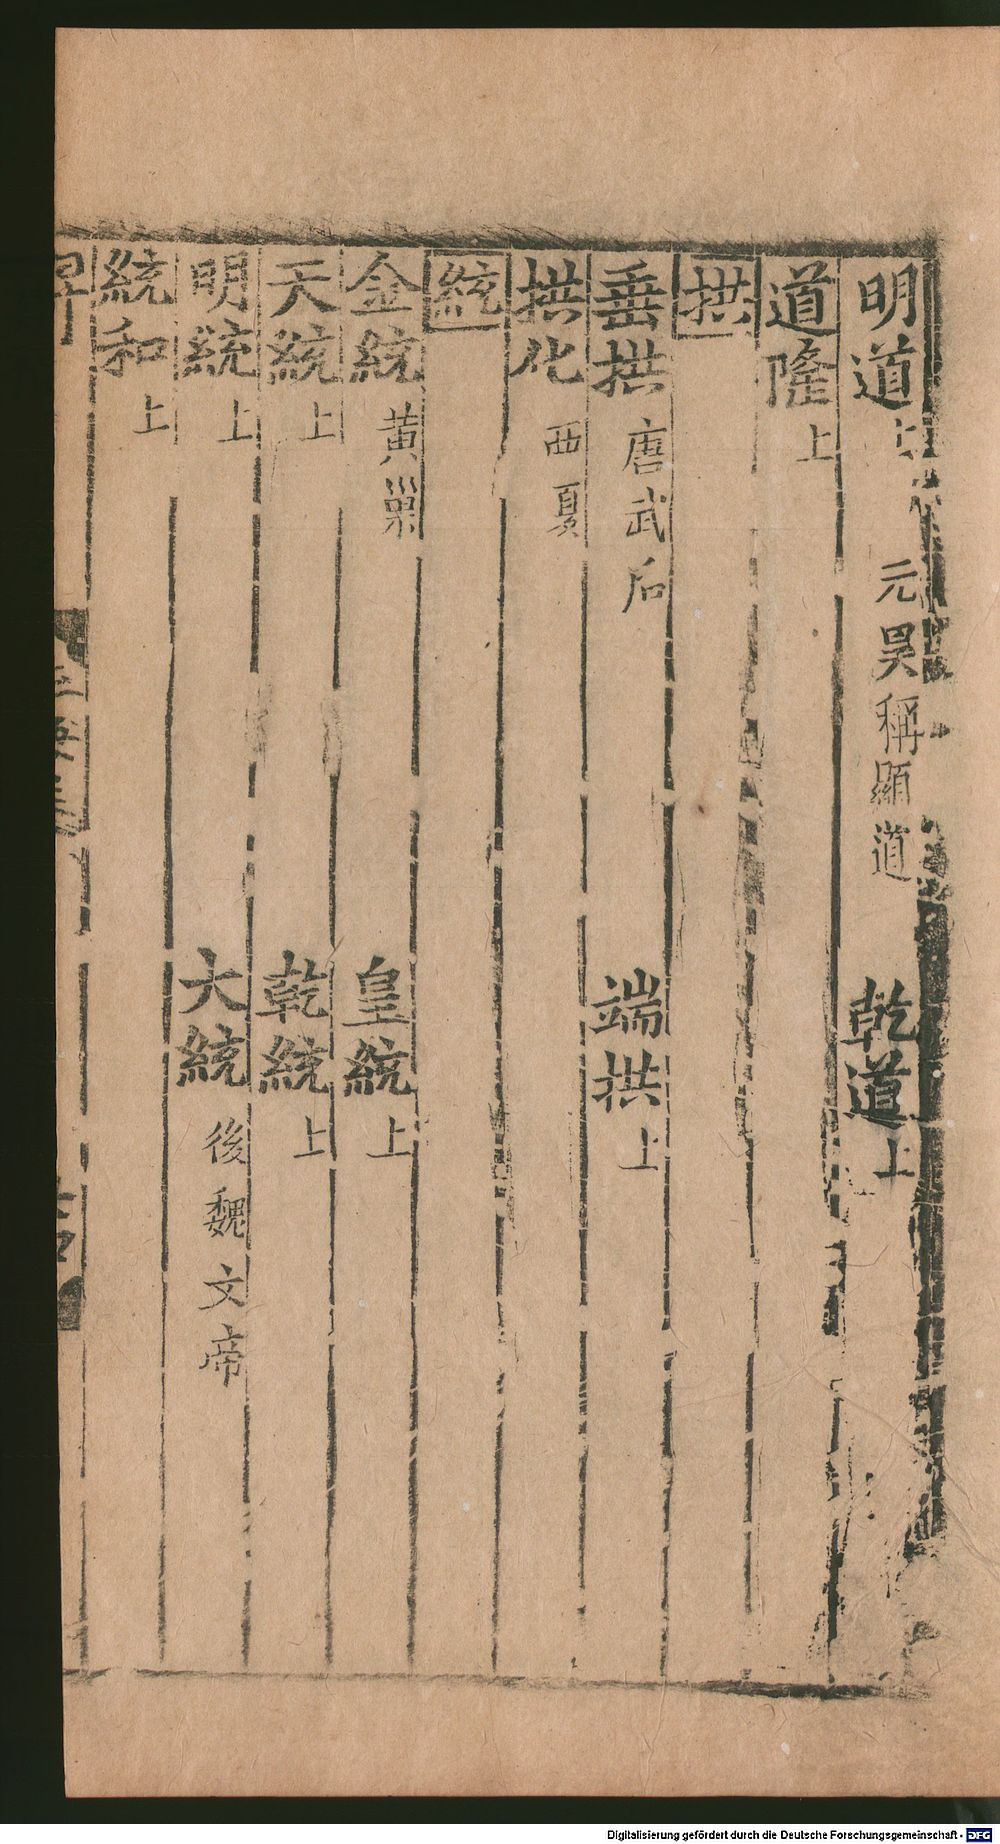 明道上 元昊稱顯道 乾道上
道隆上
拱
垂拱 唐武后 端拱上
拱化 西夏
統
金統 黄巢 皇統上
天統上 乾統上
明統上 大統 後魏文帝
統和上
Digitalisierung gefördert durch die Deutsche Forschungsgemeinschaft - DFG